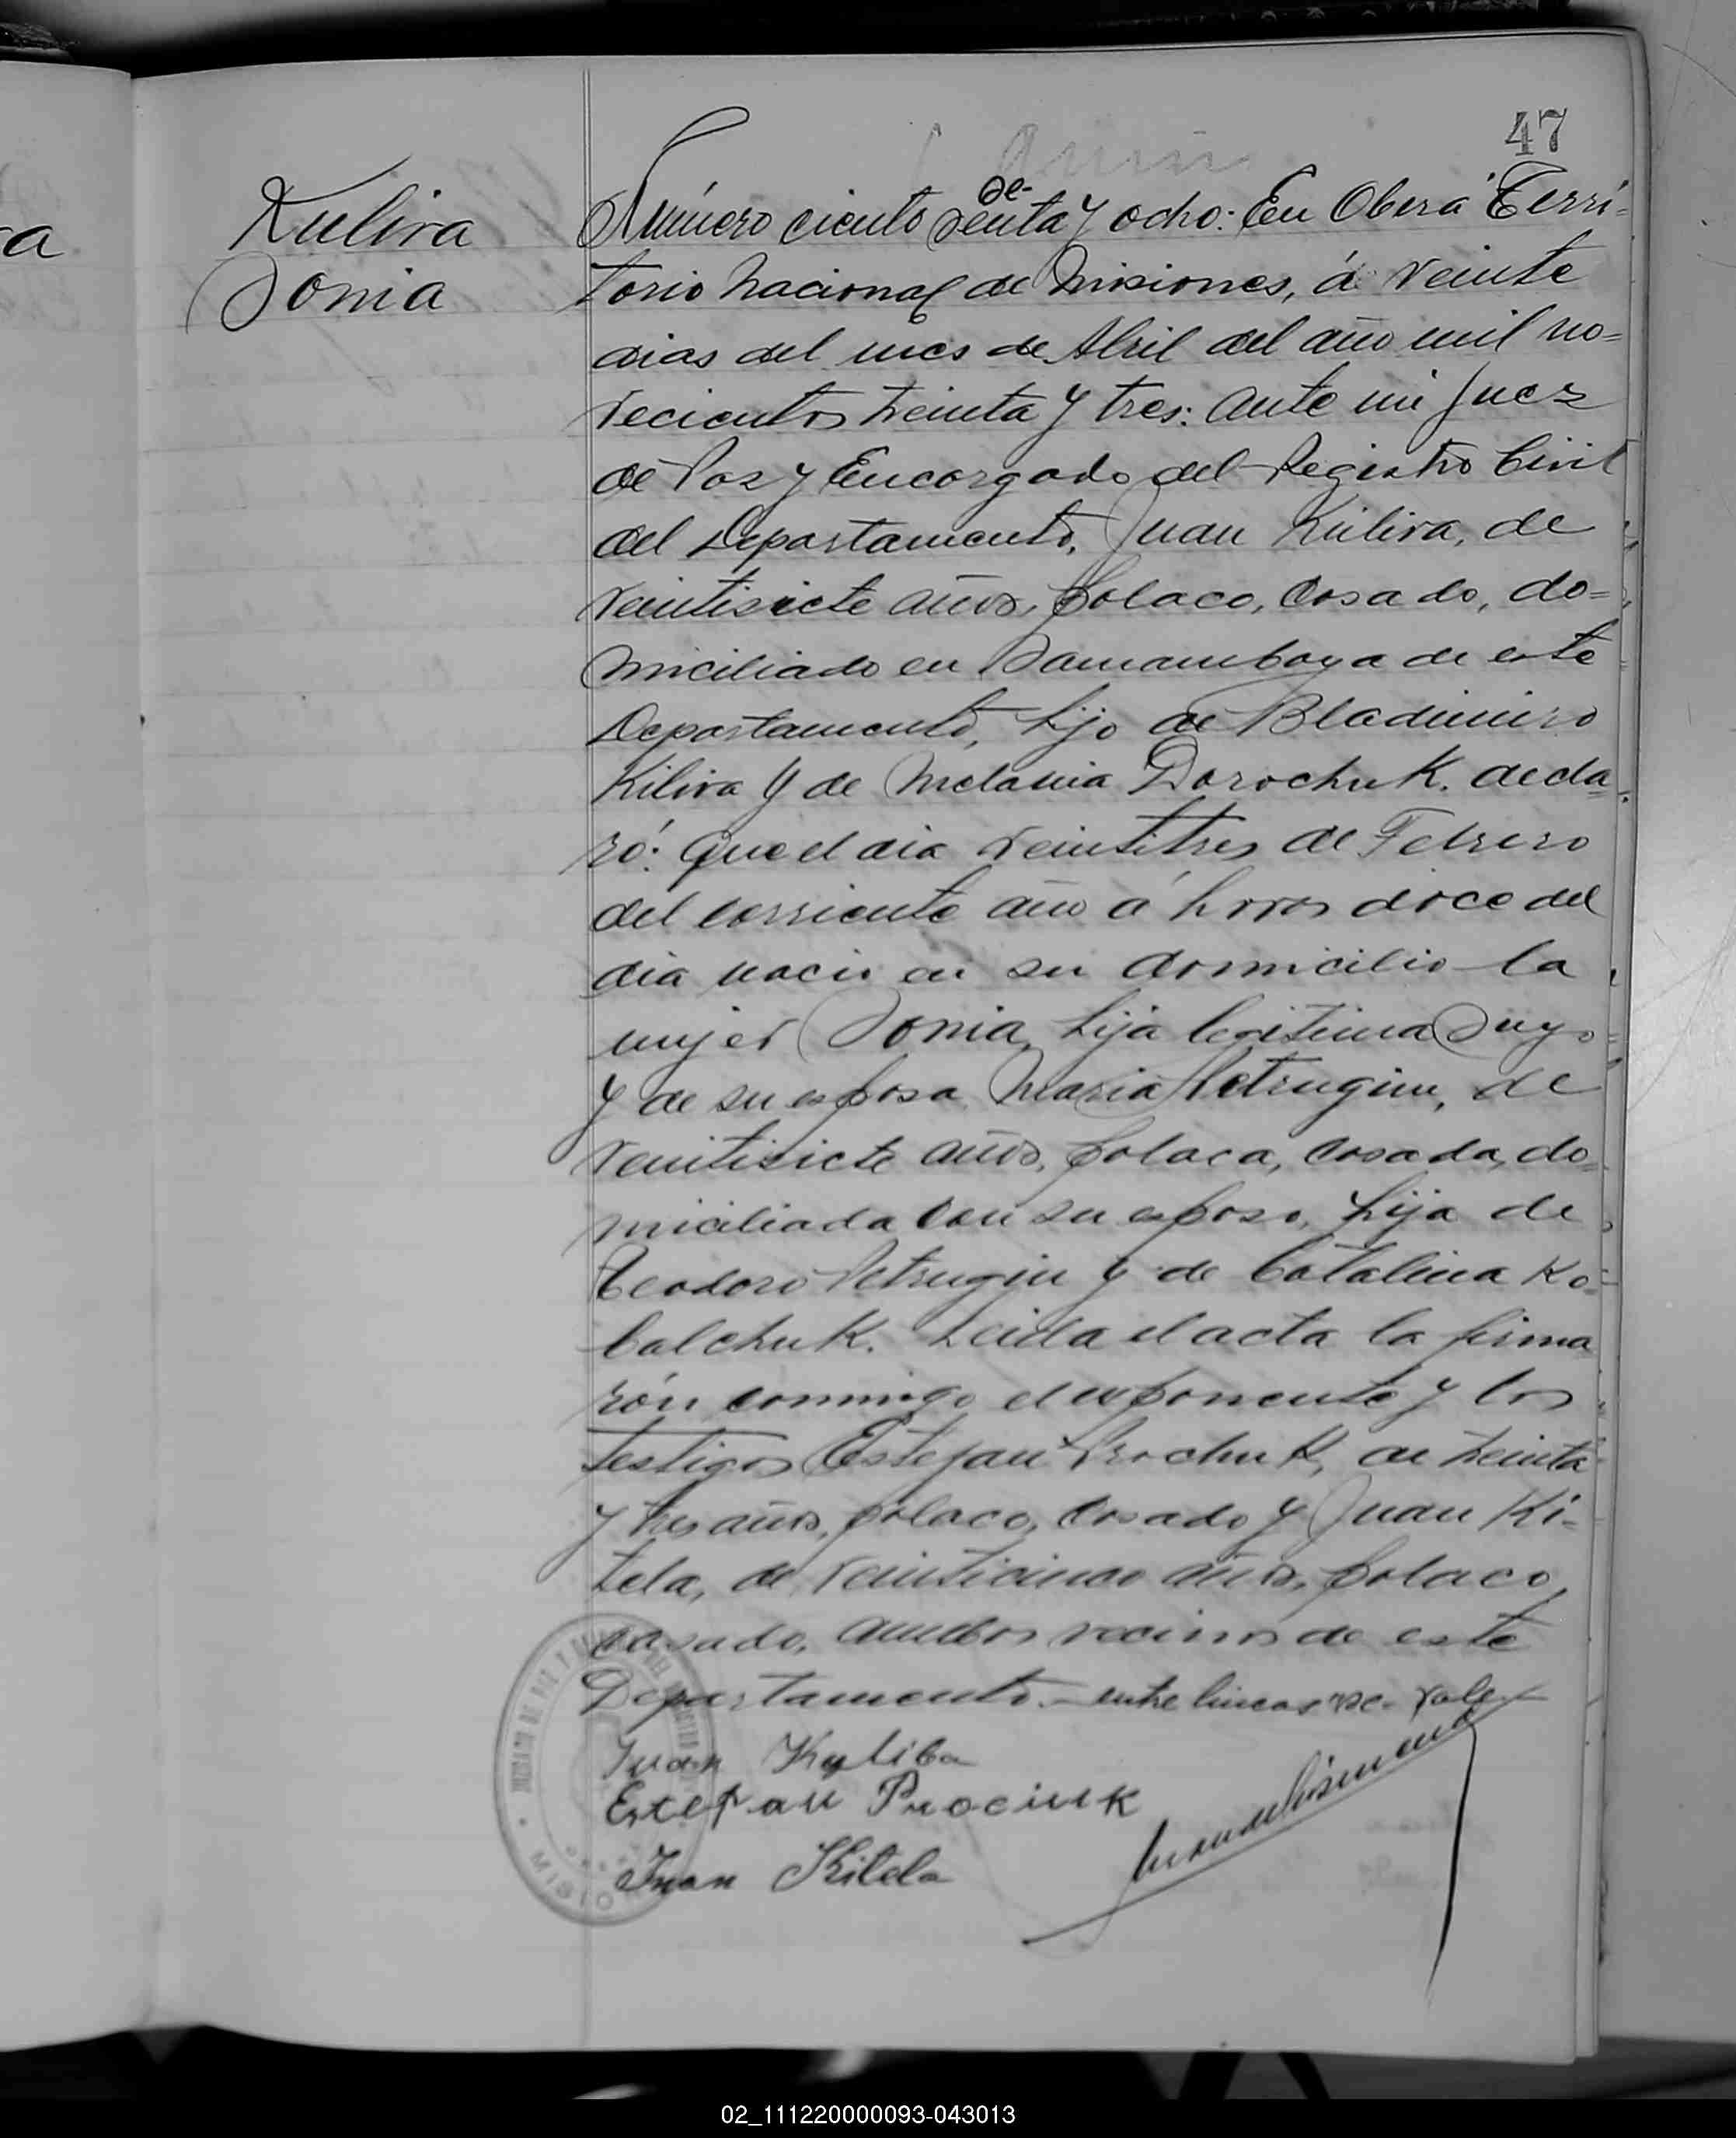 47
Kulira
Sonia
Número ciento setenta y ocho: En Oberá Terri-
torio Nacional de Misiones, á veinte
dias del mes de Abril del año mil no-
vecientos treinta y tres: ante mi Juez
de Paz y Encargado del Registro Civil
del Departamento, Juan Kulira, de
veintisiete años, polaco, casado, do-
miciliado en Samambaya de este
Departamento, hijo de Bladimiro
Kilira y de Melania Dorochuk. decla-
ró: Que el dia veintitres de Febrero
del corriente año á horas doce del
dia nació en su domicilio la
mujer Sonia, hija legitima suya
y de su esposa Maria Petrugin, de
veintisiete años, polaca, casada, do-
miciliada con su esposo, hija de
Teodoro Petrugin y de Catalina Ko-
balchuk. Leida el acta la firma
rón conmigo el exponente y los
testigos Estefan Prochuk, de treinta
y tres años, polaco, casado y Juan Ki-
tela, de veinticinco años, polaco,
casado, ambos vecinos de este
Departamento.- entre lineas "se"- vale
Juan Kyliba
Estefan Prociuk
Juan Kitela
JUZGADO DE PAZ Y
DEL REGISTRO
02_111220000093-043013